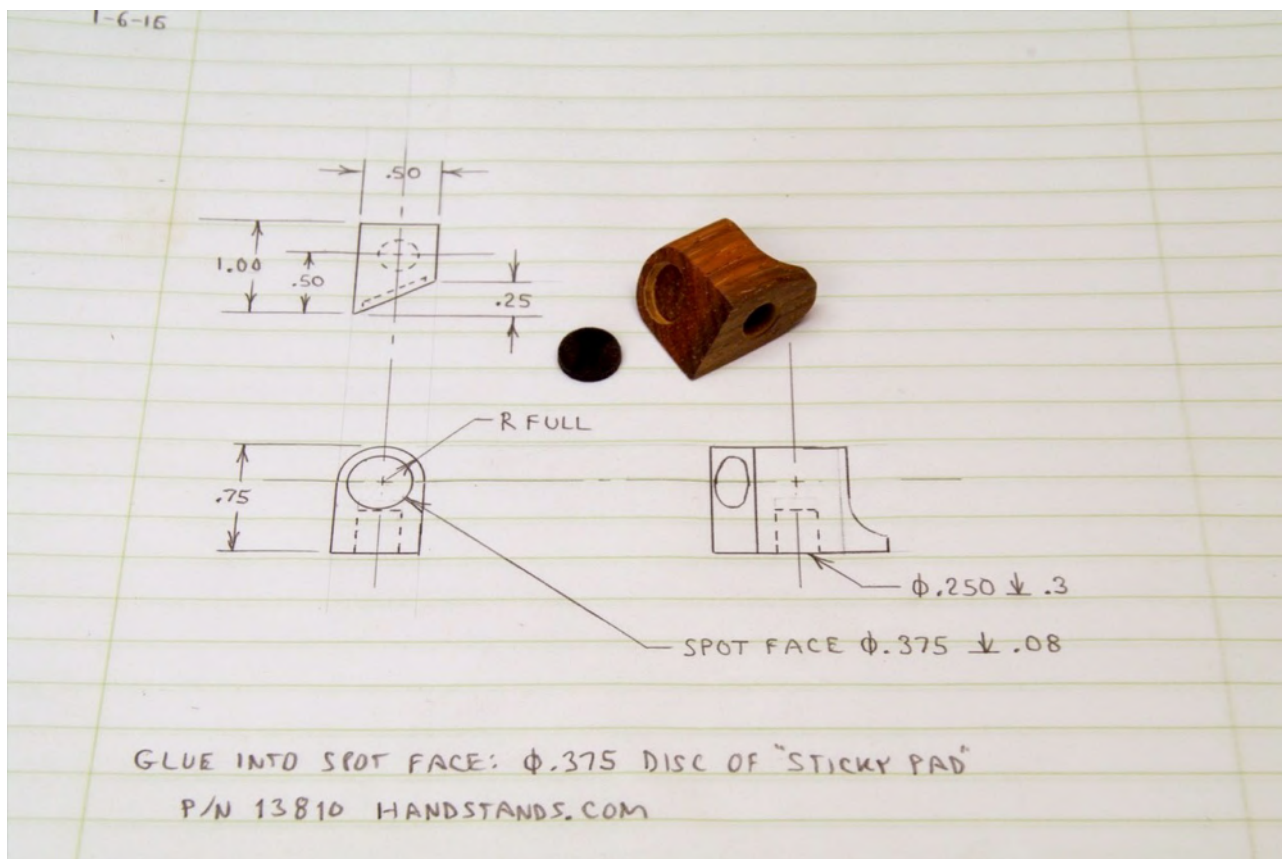 1-6-16
.50
1.00
.50
.25
R FULL
.75
ϕ.250 ↧ .3
SPOT FACE ϕ.375 ↧ .08
GLUE INTO SPOT FACE: ϕ.375 DISC OF "STICKY PAD"
P/N 13810 HANDSTANDS.COM